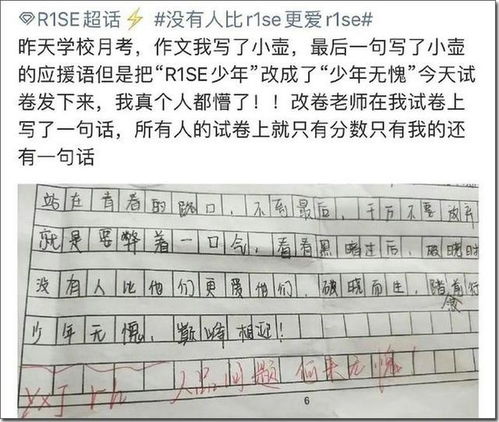 R1SE超话⚡ #没有人比r1se更爱r1se#
昨天学校月考，作文我写了小壶，最后一句写了小壶
的应援语但是把“R1SE少年”改成了“少年无愧”今天试
卷发下来，我真个人都懵了！！改卷老师在我试卷上
写了一句话，所有人的试卷上就只有分数只有我的还
有一句话
站在青春的路口，不到最后，千万不要放弃
就是要弊着一口气，看着黑暗过后，破晓时
没有人比他们更爱他们，破晓而生，踏
少年无愧，巅峰相迎！
yxj rh 人品问题 何来无愧！
6